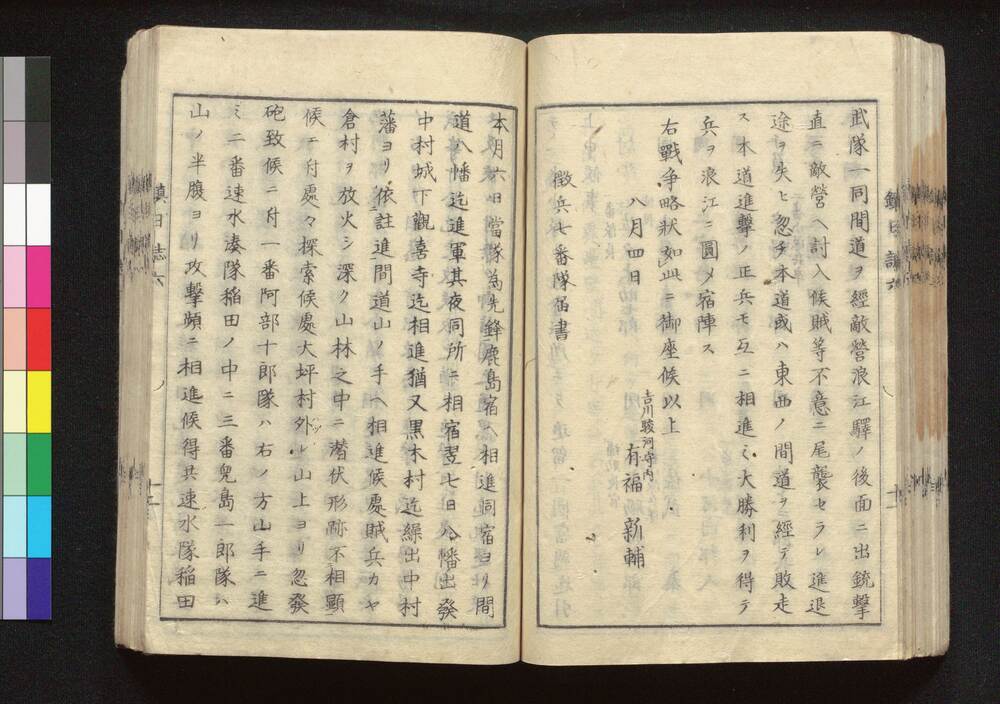 武隊一同間道ヲ經敵營浪江驛ノ後面ニ出銃撃
直ニ敵營ヘ討入候賊等不意ニ尾襲セラレ進退
途ヲ失ヒ忽チ本道或ハ東西ノ間道ヲ經テ敗走
ス本道進撃ノ正兵モ互ニ相進ミ大勝利ヲ得テ
兵ヲ浪江ニ圓メ宿陣ス
右戰争略狀如此ニ御座候以上
八月四日
吉川駿河守内
有福新輔
徴兵七番隊届書
本月六日當隊為先鋒鹿島宿ヘ相進同宿ヨリ間
道八幡迄進軍其夜同所ニ相宿翌七日八幡出發
中村城下觀喜寺迄相進猶又黒木村迄繰出中村
藩ヨリ依註進間道山ノ手ヘ相進候處賊兵カヤ
倉村ヲ放火シ深ク山林之中ニ潜伏形跡不相顯
候ニ付處々探索候處大坪村外レ山上ヨリ忽發
砲致候ニ付一番阿部十郎隊ハ右ノ方山手ニ進
ミ二番速水湊隊稲田ノ中ニ三番兒島一郎隊ハ
山ノ半腹ヨリ攻撃頻ニ相進候得共速水隊稲田
鎮日誌六